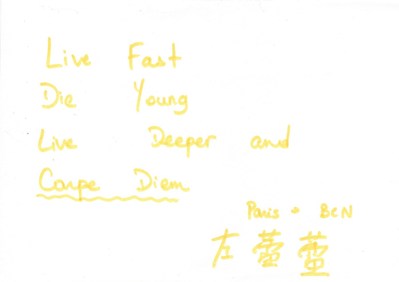 Live Fast
Die Young
Live Deeper and
Carpe Diem
Paris • BCN
左